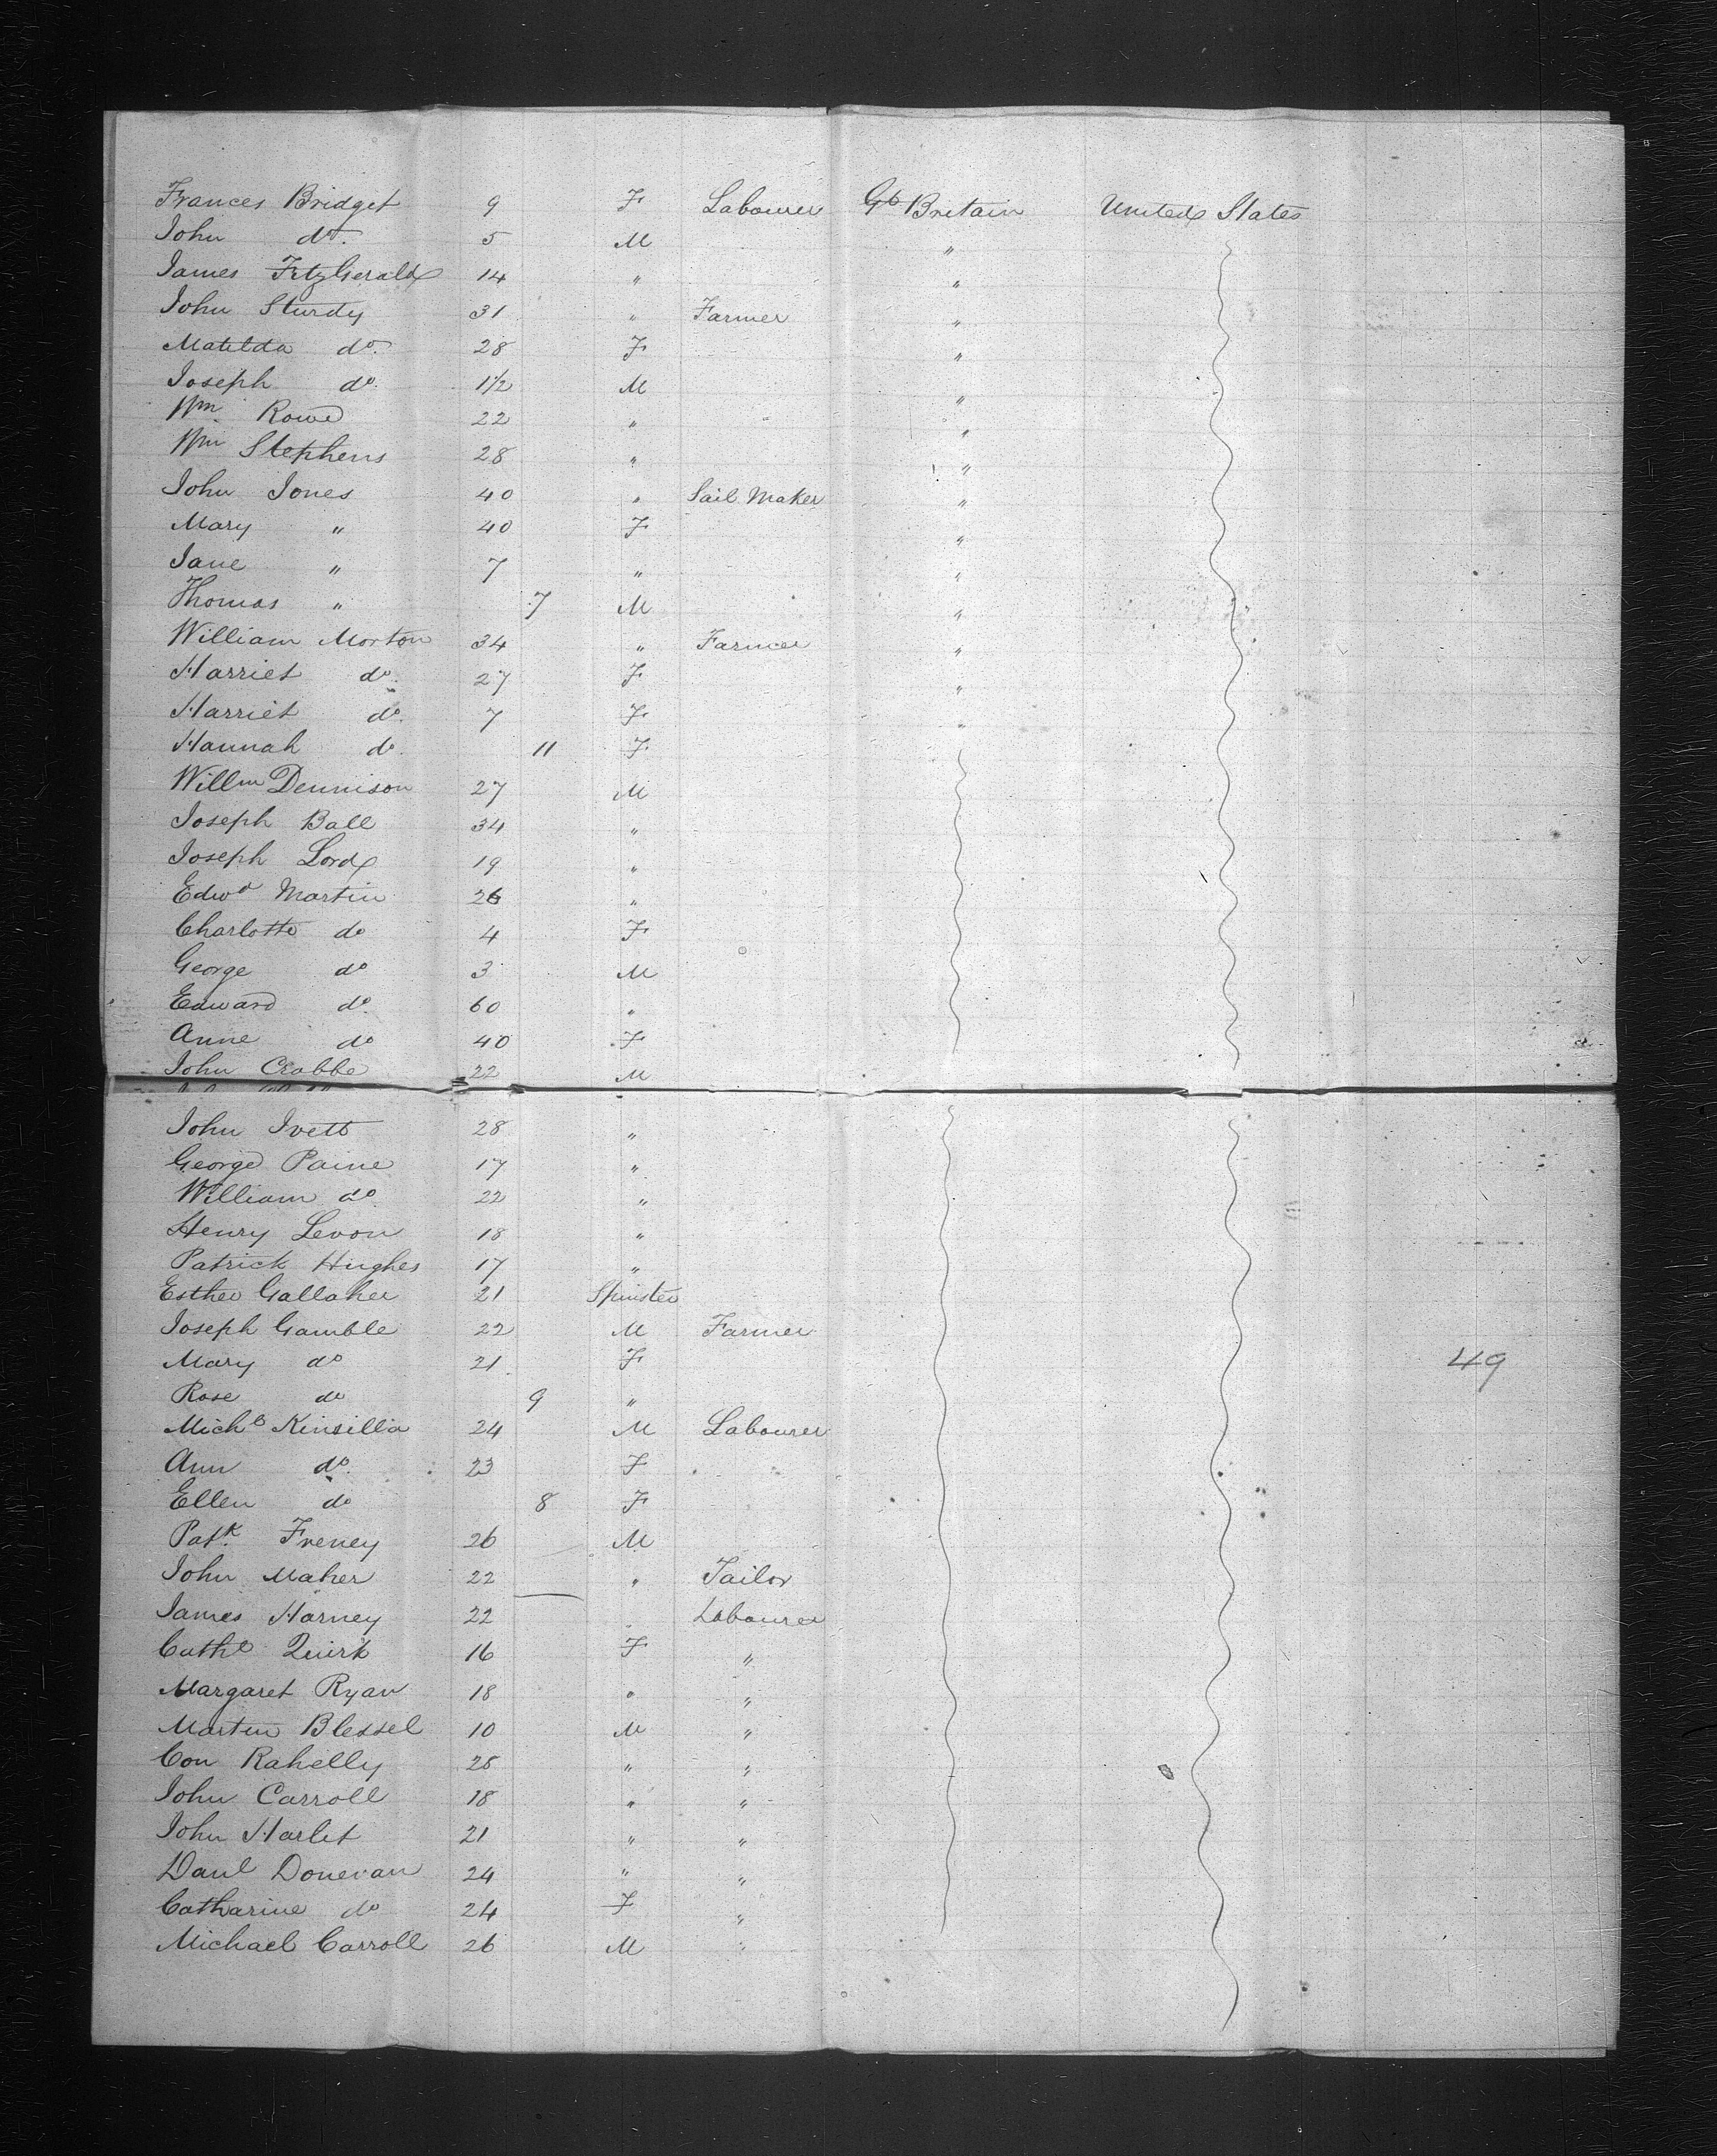 Frances Bridget 9 F Labourer Gt Britain United States
John do. 5 M "
James FitzGerald 14 " "
John Sturdy 31 " Farmer "
Matilda do. 28 F "
Joseph do. 1½ M "
Wm Rowe 22 " "
Wm Stephens 28 " "
John Jones 40 " Sail Maker "
Mary " 40 F "
Jane " 7 " "
Thomas " 7 M "
William Morton 34 " Farmer "
Harriet do. 27 F "
Harriet do. 7 F "
Hannah do. 11 F
Willm Dennison 27 M
Joseph Ball 34 "
Joseph Lord 19 "
Edwd Martin 26 "
Charlotte do 4 F
George do 3 M
Edward do. 60 "
Anne do 40 F
John Crabbe 22 M
John Ivett 28 "
George Paine 17 "
William do. 22 "
Henry Levon 18 "
Patrick Hughes 17 "
Esther Gallaher 21 Spinster
Joseph Gamble 22 M Farmer
Mary do 21 F 49
Rose do 9 "
Michl Kinsilla 24 M Labourer
Ann do. 23 F
Ellen do 8 F
Patk. Freney 26 M
John Maher 22 " Tailor
James Harney 22 Labourer
Cathe Quirk 16 F "
Margaret Ryan 18 " "
Martin Blessel 10 M "
Con Rahelly 25 " "
John Carroll 18 " "
John Harlet 21 " "
Danl Donevan 24 " "
Catharine do 24 F "
Michael Carroll 26 M "